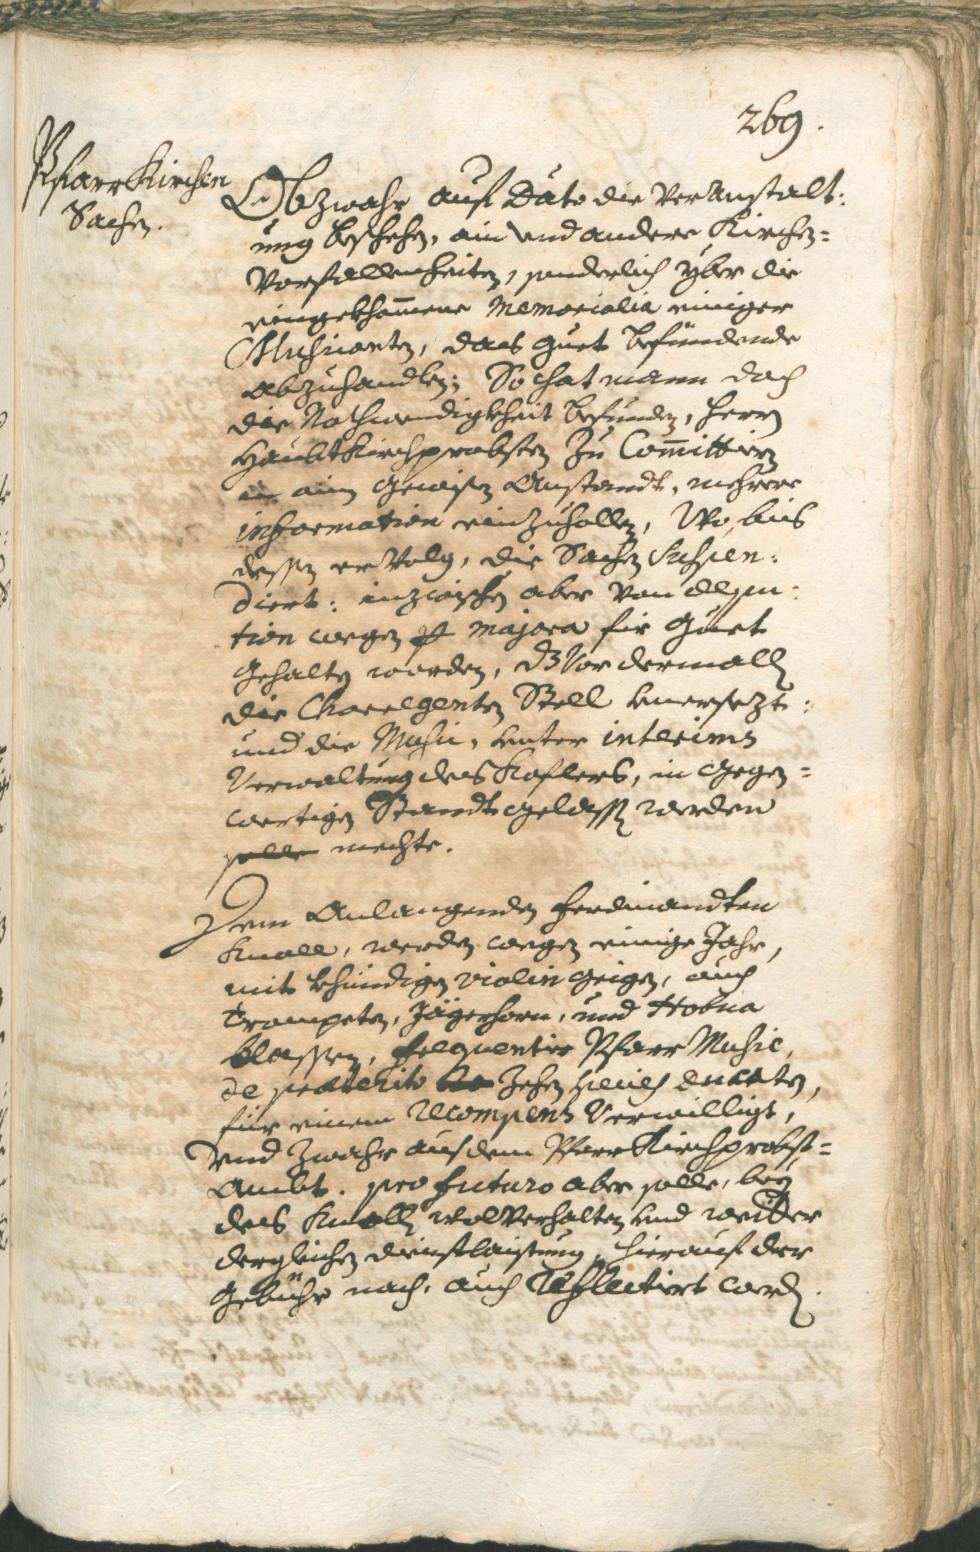 269.
Pfarr Kirchen
Sachen.
Obzwahr auf Dato die Veranstalt:
ung beschehen, ain und andere Kirchen=
Vorfallenheiten, sonderlich yber die
eingekhom̄ene Memorialia einiger
Musicanten, das guet befundende
abzuhandlen; So hat mann doch
die Nothwendigkheit befunden, Herrn
Haubt Kirchprobsten zu Com̄ittiern
ain gewisen Anstandt, mehrere
information einzuhollen, Wo, bis
dessen ervolg, die Sachen suspen:
diert: inzwischen aber von
tion wegen majora für guet
gehalten worden, dermallen
die Choregenten Stell unersezt:
und die Music, unter interims
Verwaltung des Koflers, in gegen=
wertigen Standt gelassen werden
solle mechte.
Dem Anlangenden Ferdinandten
Knoll, werden wegen einige Jahr,
mit khündigen violin geigen, auch
Trompeten, Jägerhorn, und Hobua
blassen, frequentirter Pfarr Music,
de praeterito Zehen
für einen recompens verwilligt,
und zwahr aus dem Pfarr Kirchprobst=
Ambt. pro futuro aber solle, bey
des Knolln wolverhalten und weitter
dergleichen dienstlaistung, hierauf der
gebühr nach, auch reflectiert werden.